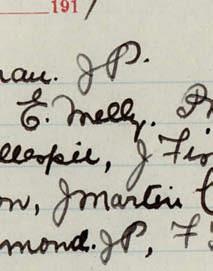 191
nau. J.P.
E. Melly. Pr
llespie, J Fis
on, J Martin
mond. J.P., F